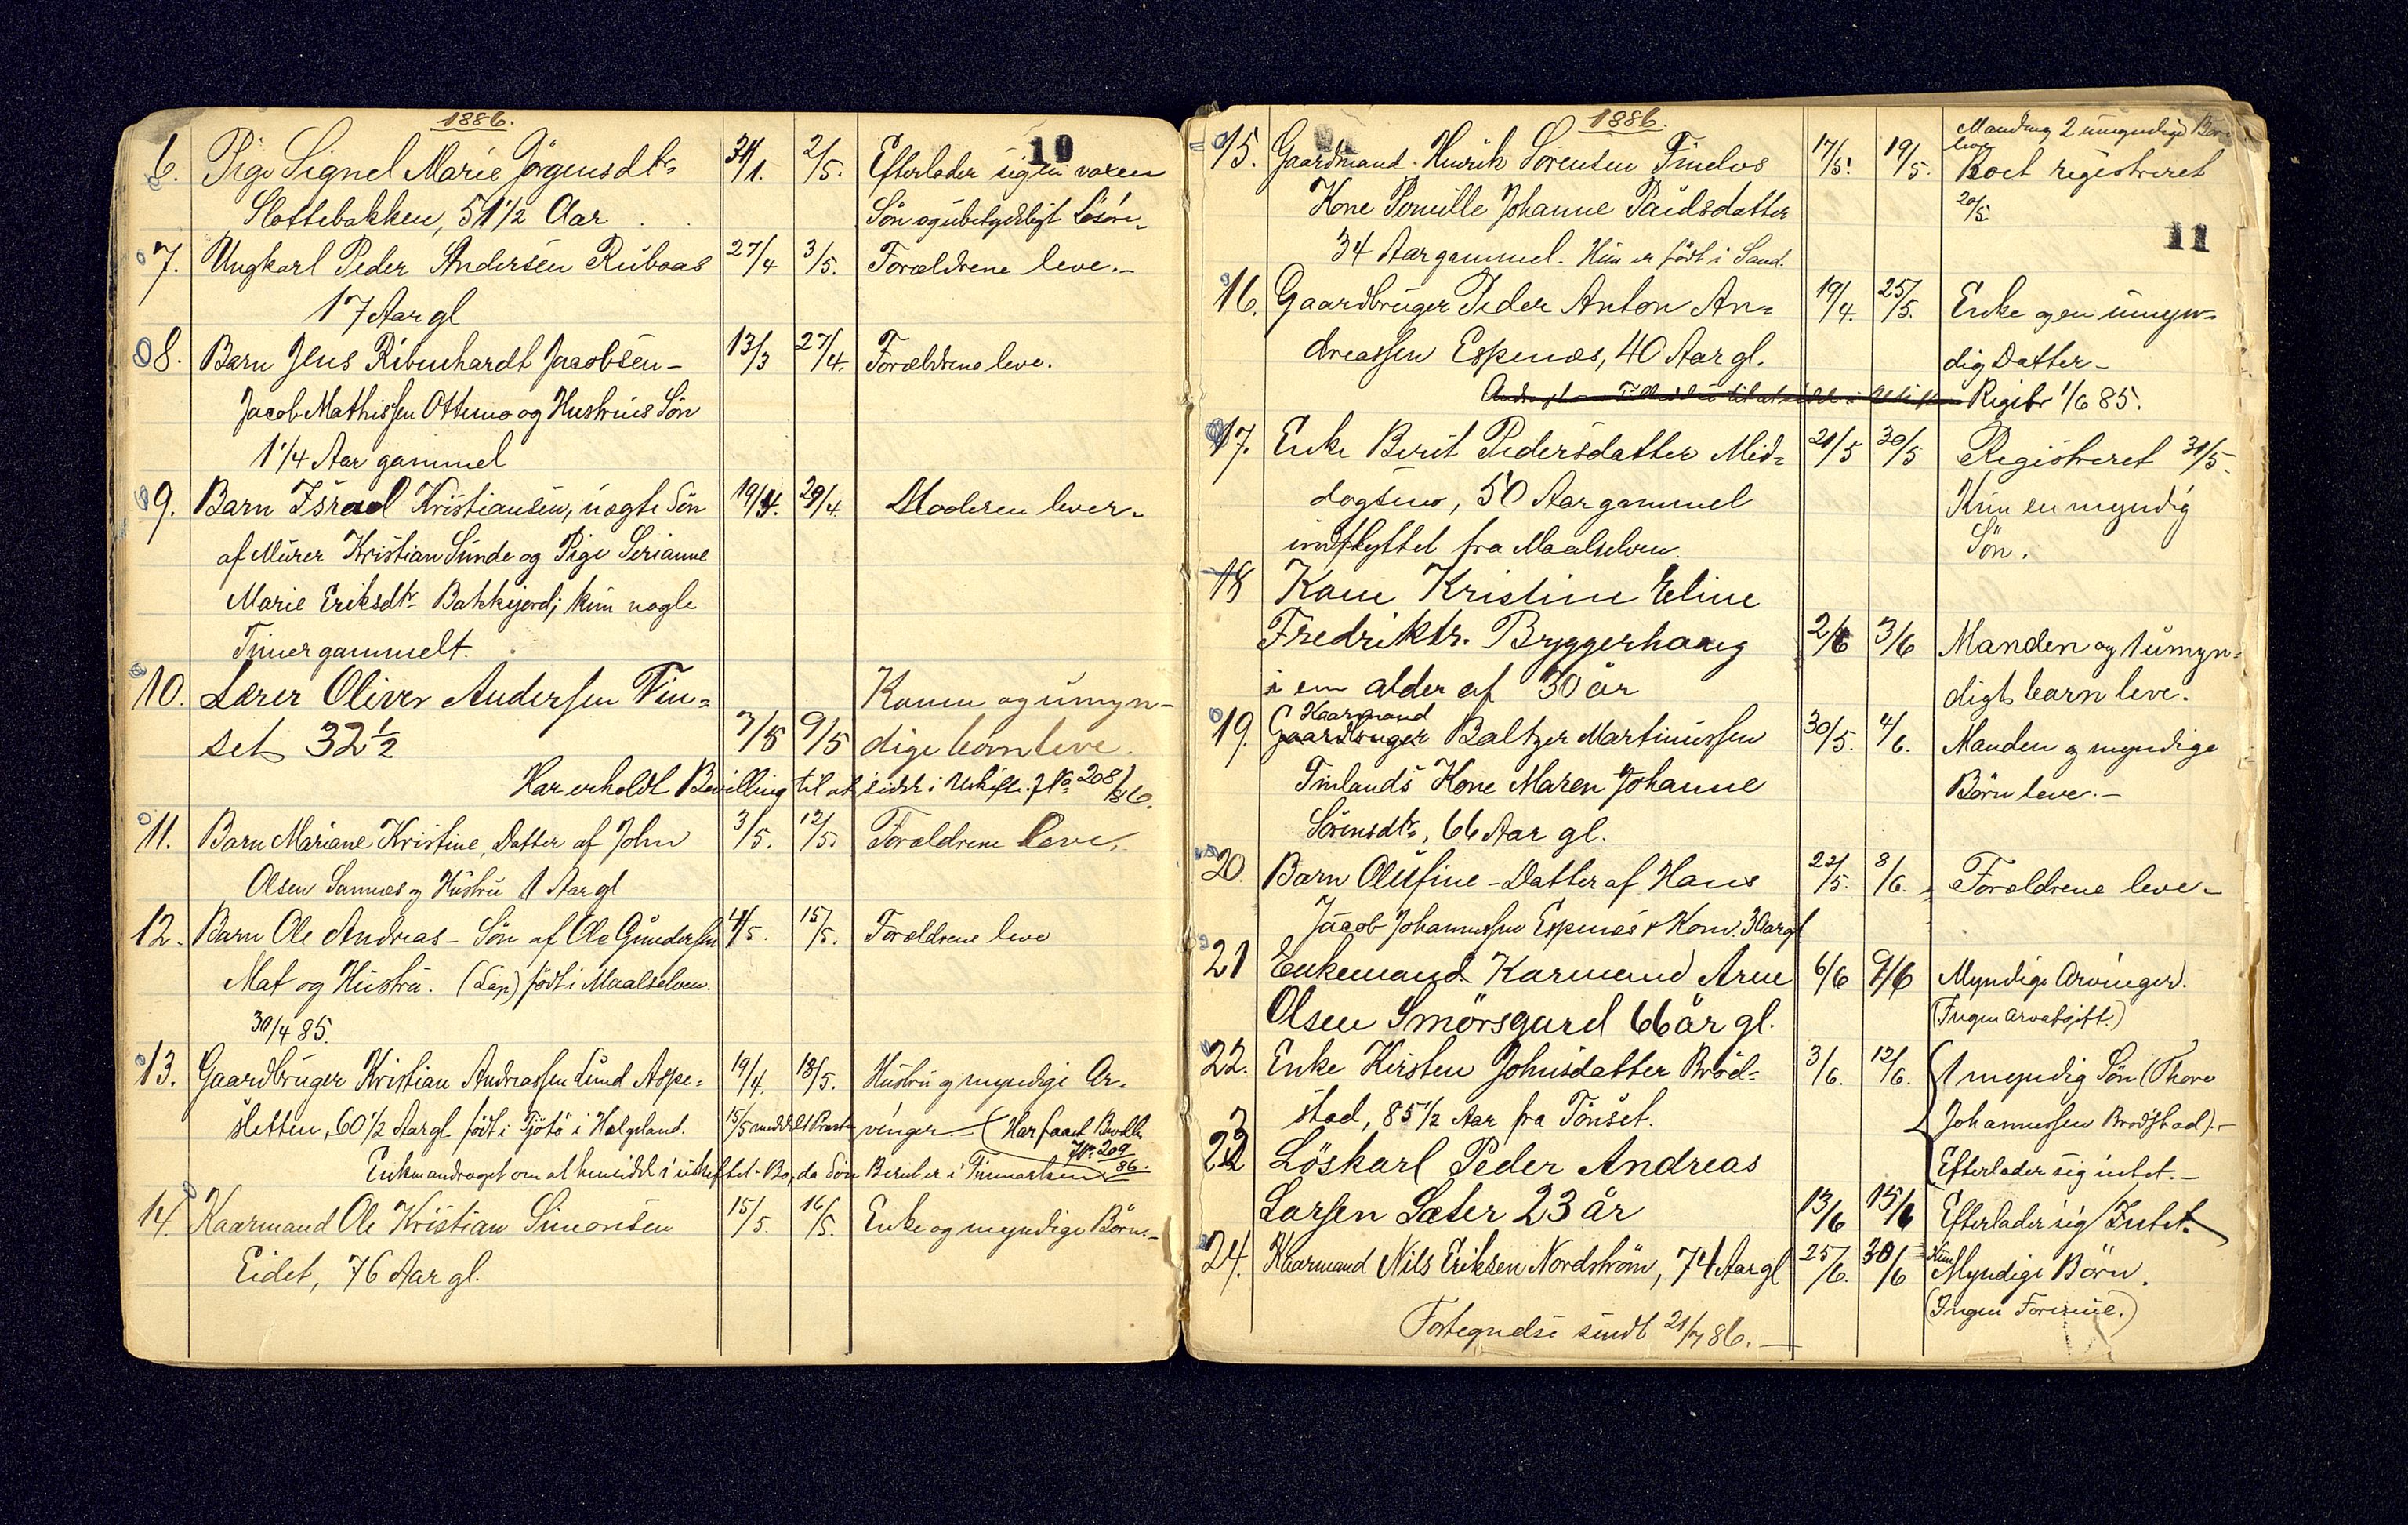 1886.
10
6. Pige Signel Marie Jörgensdtr 31/1. 2/5. Efterlader sig en voxen
Slettebakken, 51 1/2 Aar Sön og ubetydeligt Lösöre.
7. Ungkarl Peder Andersen Rubaas 27/4 3/5. Forældrene leve.-
17 Aar gl
8. Barn Jens Ribenhardt Jacobsen - 13/3 27/4. Forældrene leve.
Jacob Mathissen Ottemo og Hustrues Sön
1 1/4 Aar gammel
9. Barn Israel Kristiansen, uægte Sön 19/4. 29/4. Moderen lever.
af Murer Kristian Sunde og Pige Serianne
Marie Eriksdtr Bakkejord; kun nogle
Timer gammelt.
10. Lærer Oliver Andersen Fin= Konen og umyn-
set 32 1/2 7/5 9/5 dige börn leve.
Har erholdt Bevilling til at sidde i Uskifte. J No 208/86.
11. Barn Mariane Kristine, Datter af John 3/5. 12/5. Forældrene leve.
Olsen Sannæs og Hustru 1 Aar gl
12. Barn Ole Andreas - Sön af Ole Gundersen 4/5. 15/5. Forældrene leve
Mat og Hustru. (Lap) födt i Maalselven.
30/4 85.
13. Gaardbruger Kristian Andreassen Lund Aspe= 19/4. 18/5. Hustru og myndige Ar=
sletten, 60 1/2 Aar gl födt i Tjötö i Helgeland. 15/5 meddelt Præst vinger.- (Har faaet Bevill.
J No 209/86.
Enken andraget om at hensidde i uskiftet Bo, da Sön Bernt er i Finmarken
14. Kaarmand Ole Kristian Simonsen 15/5. 16/5. Enke og myndige Börn.-
Eidet, 76 Aar gl.
1886.
11
Mand og 2 umyndige Börn
leve
15. Gaardmand Henrik Sörensen Finelvs 17/5. 19/5. Boet registreret
Kone Pernille Johanne Paulsdatter 20/5
34 Aar gammel. Hun er födt i Sand.
16. Gaardbruger Peder Anton An= 19/4. 25/5. Enke og en umyn=
dreassen Espenæs, 40 Aar gl. dig Datter -
Regibr 1/6 85.
17. Enke Berit Pedersdatter Mid= 21/5 30/5 Registreret 31/5.
dagsmo, 50 Aar gammel Kun en myndig
indflyttet fra Maalselven. Sön.
18 Kone Kristine Eline
Fredriktr. Bryggerhaug 2/6 3/6 Manden og 1 umyn=
i en alder af 30 år digt barn leve.
Kaarmand
19. Gaardbruger Baltzer Martinussen 30/5. 4/6. Manden og myndige
Finlands Kone Maren Johanne Börn leve.-
Sörensdtr, 66 Aar gl.
20. Barn Olufine - Datter af Hans 22/5. 8/6. Forældrene leve-
Jacob Johannessen Espenæs & Kone. 3 Aar gl
21 Enkemand Karmand Arne 6/6 9/6 Myndige Arvinger.
Olsen Smörsgard 66 år gl. (Ingen Arvafgift.)
22. Enke Kirsten Johnsdatter Bröd= 3/6. 12/6. 1 myndig Sön (Thore
stad, 85 1/2 Aar fra Tönset. Johannessen Brödstad).-
23 Löskarl Peder Andreas Efterlader sig intet.-
Larsen Sæter 23 år 13/6 15/6 Efterlader sig Intet.
24. Kaarmand Nils Eriksen Nordström, 74 Aar gl 25/6. 30/6 Kun Myndige Börn.
(Ingen Formue.)
Fortegnelse sendt 21/7 86.-